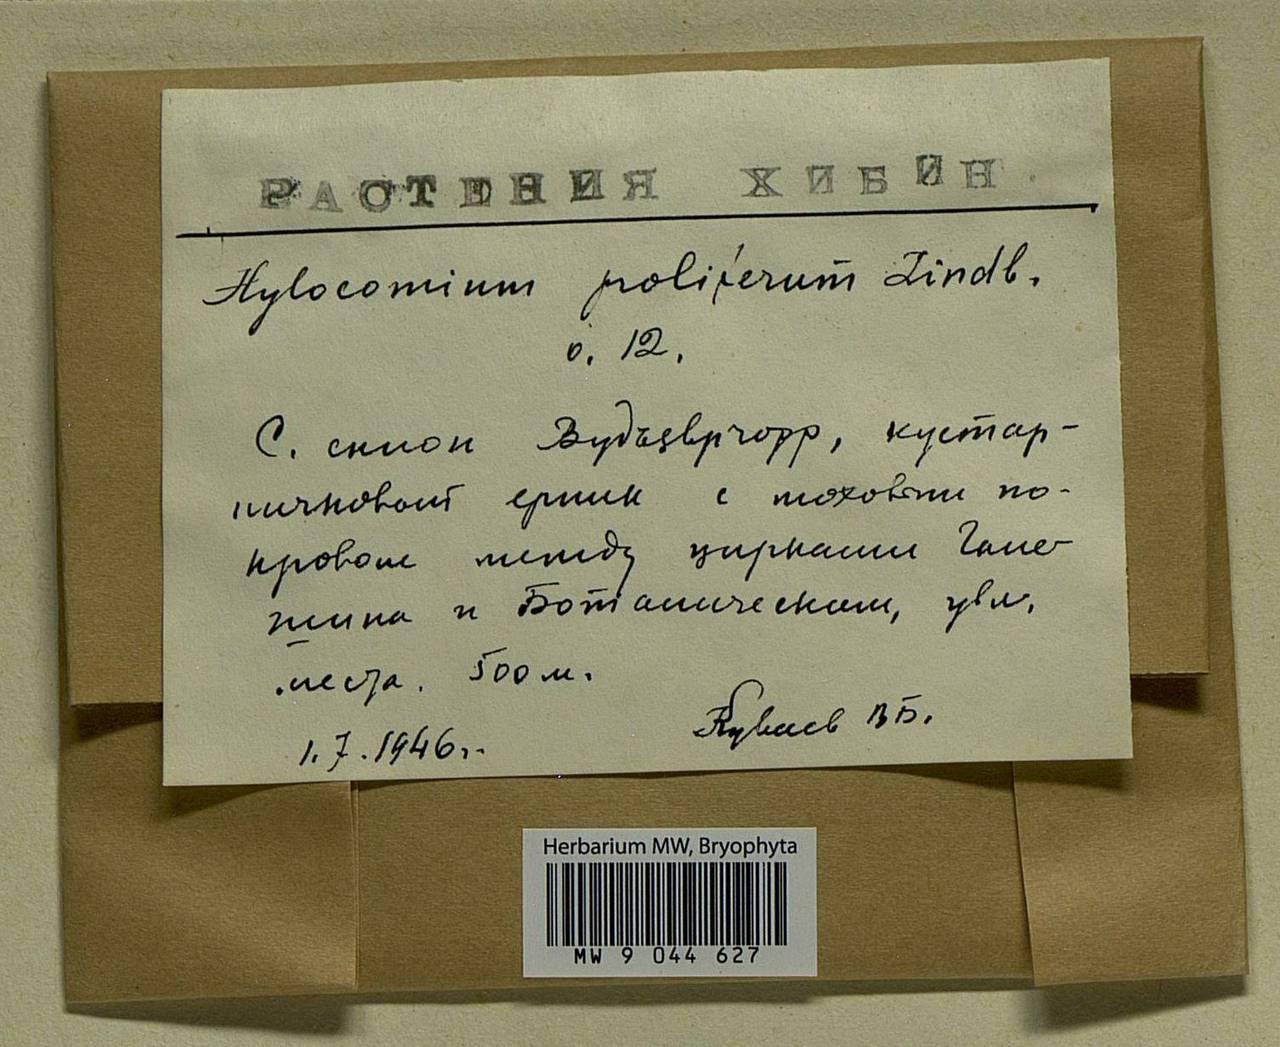 РАСТЕНИЯ ХИБИН
Hylocomium proliferum Lindb.
о. 12.
С. склон Вудъяврчорр, кустар-
ничковый ерник с моховым по-
кровом между цирками Гане-
шина и Ботаническим, увл.
места. 500 м.
1.7.1946г.
Куваев В Б.
Herbarium MW, Bryophyta
MW 9 044 627